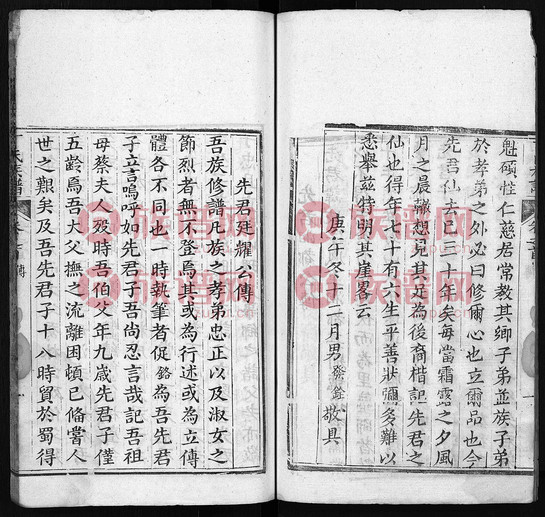 魁碩性仁慈居常教其鄉子弟並族子弟
於孝弟之外必曰修爾心也立爾品也今
先君仙去已三十年矣每當霜露之夕風
月之晨想見其足為後裔楷記先君之
仙也得年七十有六生平善狀彌多難以
悉舉茲特明其崖畧云
庚午冬十二月男銓敬具
先君廷耀公傳
吾族修譜凡族之孝弟忠正以及淑女之
節烈者無不登焉其或為行述或為立傳
體各不同也一時執筆者促銘為吾先君
子立言嗚呼如先君子吾尚忍言哉記吾祖
母蔡夫人歿時吾伯父年九歲先君子僅
五齡焉吾大父撫之流離困頓已備嘗人
世之艱矣及吾先君子十八時貿於蜀得
氏族譜
卷首
傳
族譜网
族譜网
族譜网
族譜网